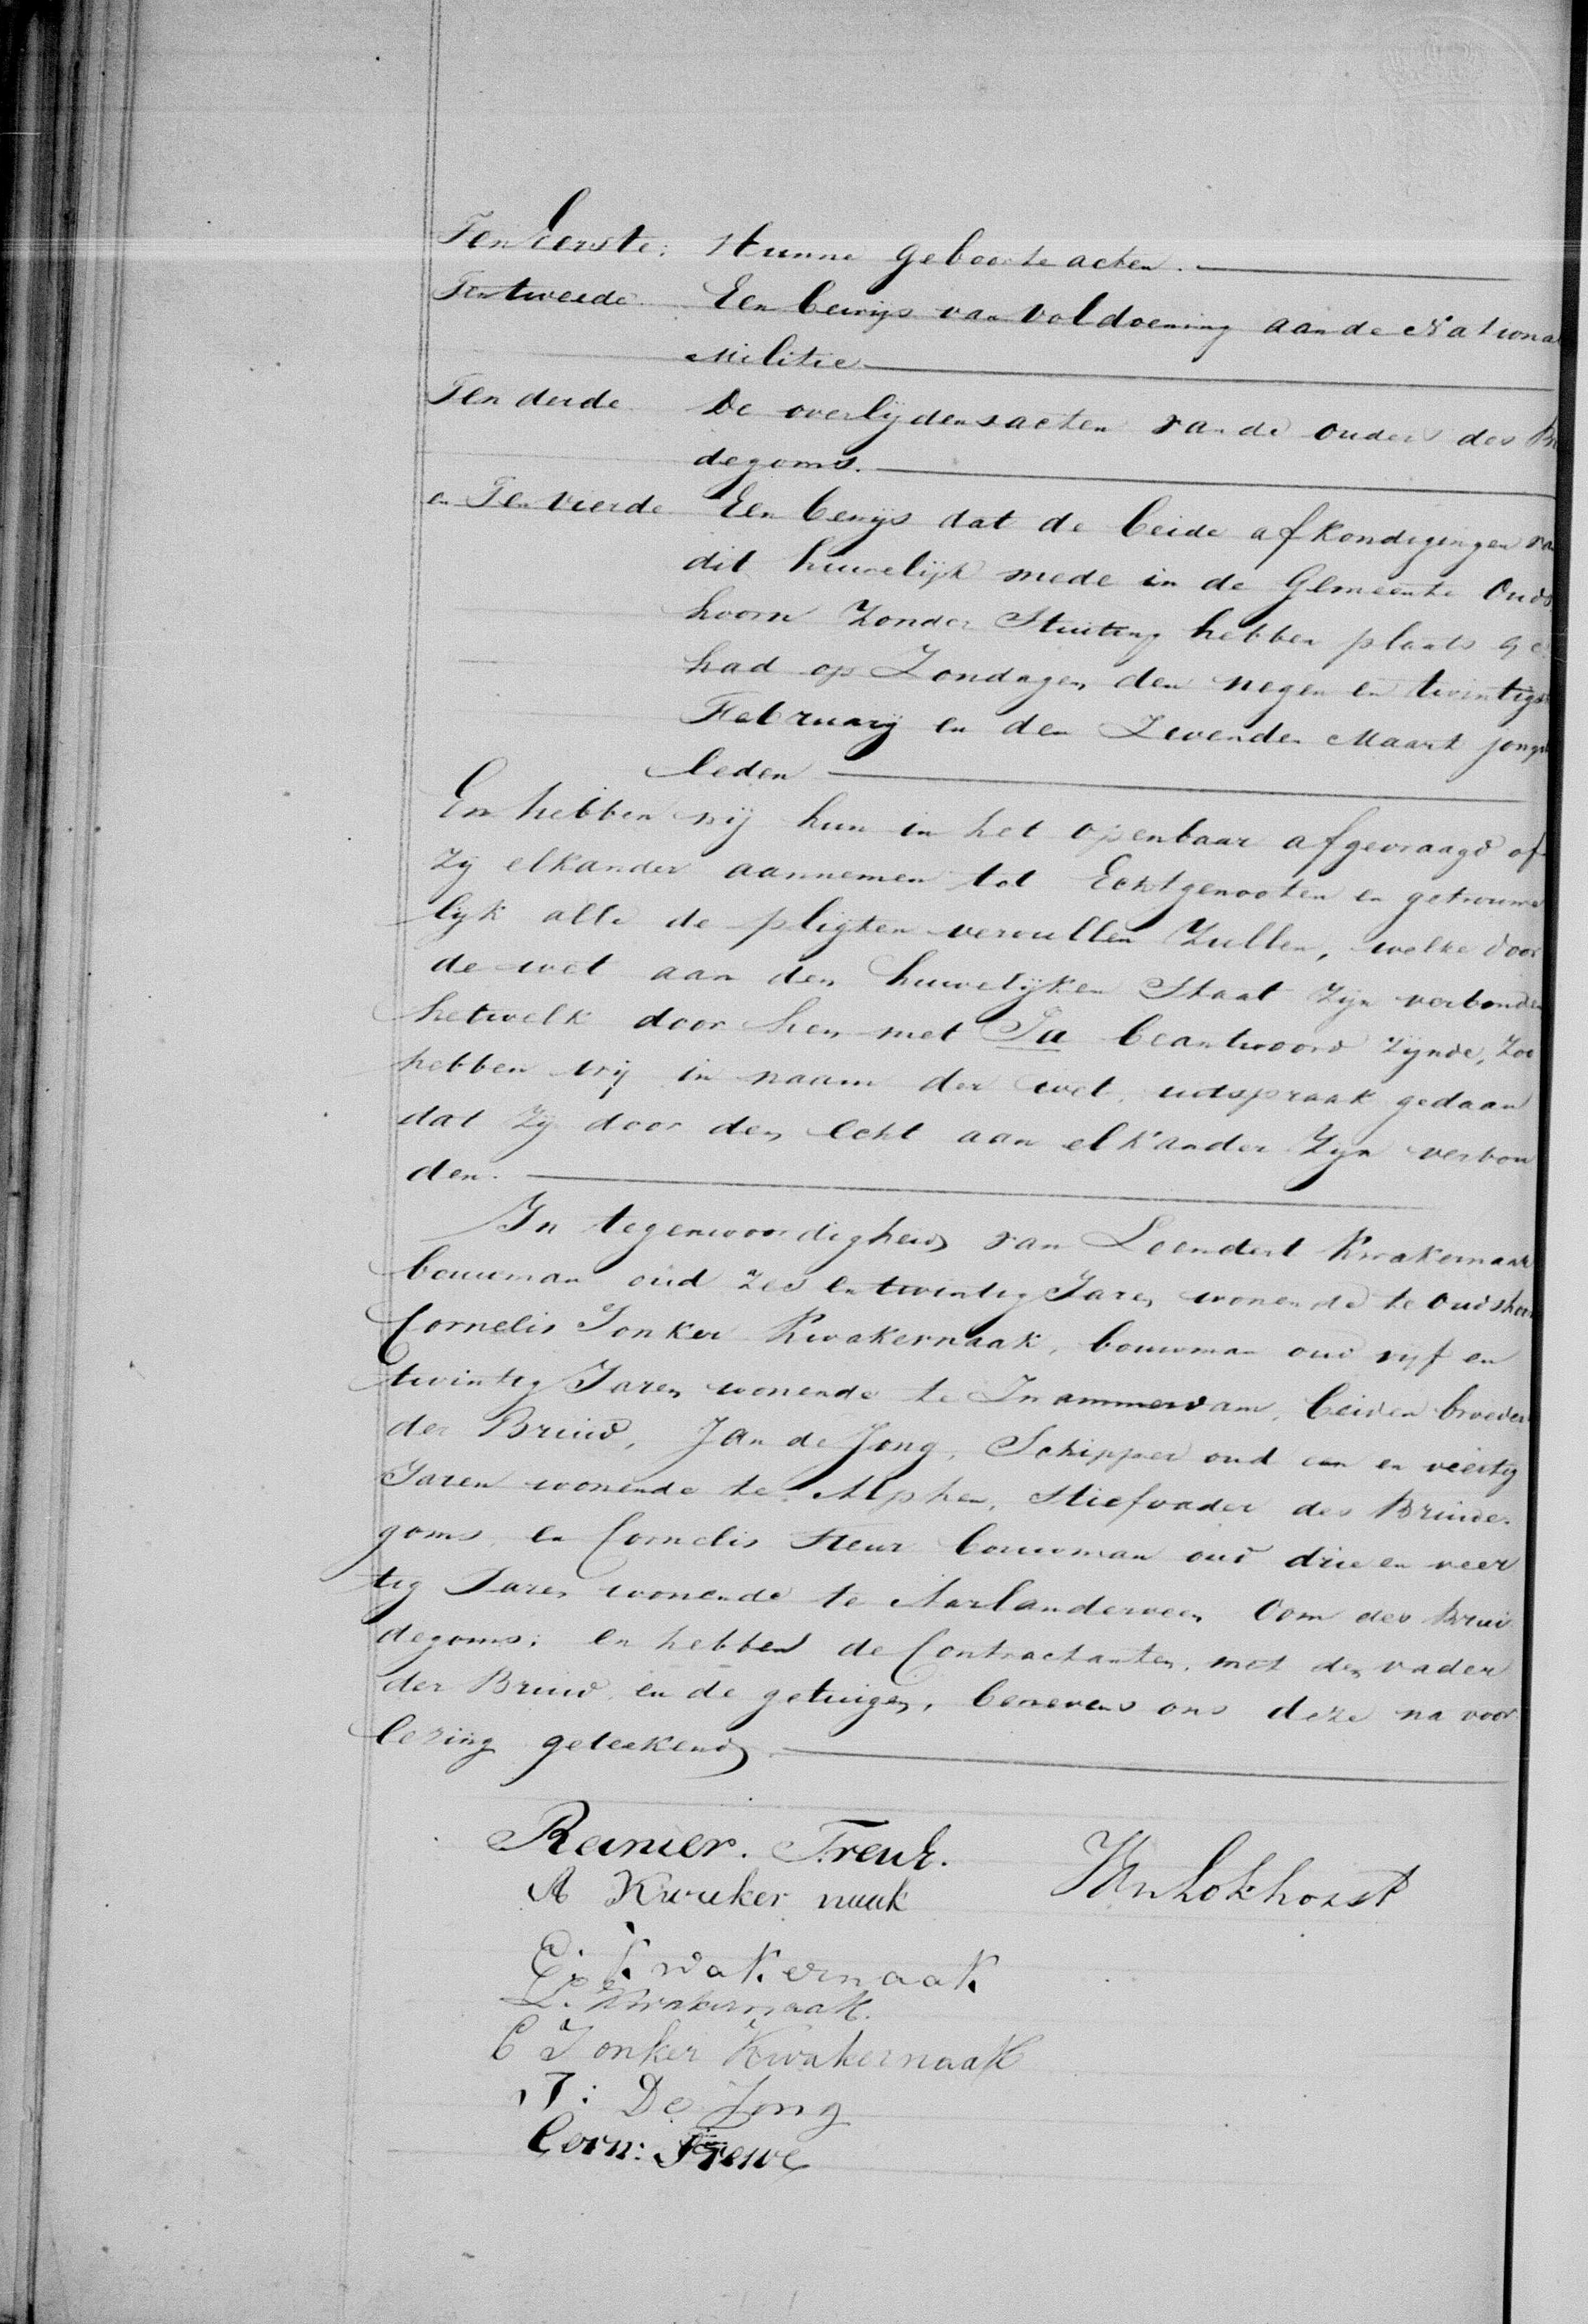 Ten Eerste: Hunne geboorte acten.
Ten tweede. Een bewijs van voldoening aan de Nationa
Militie
Ten derde De overlijdensacten van de ouders des Br
degoms.
en Ten vierde Een bewijs dat de beide afkondigingen va
dit huwelijk mede in de Gemeente Ouds
hoorn Zonder Stuiting hebben plaats ge
had op Zondagen den negen en twintigs
Februarij en den Zevenden Maart jongs
leden
En hebben wij hun in het openbaar afgevraagd of
zij elkander aannemen tot Echtgenooten en getrouwe
lijk alle de pligten vervullen Zullen, welke door
de wet aan den huwelijken Staat zijn verbonden
hetwelk door hen met Ja beantwoord zijnde, Zoo
hebben wij in naam der wet, uitspraak gedaan
dat zij door den echt aan elkander Zijn verbon
den.
In tegenwoordigheid van Leendert Kwakernaak
bouwman oud zes en twintig Jaren wonende te Oudshoorn
Cornelis Jonker Kwakernaak, bouwman oud vijf en
twintig Jaren wonende te Zwammerdam, beiden broeders
der Bruid, Jan de Jong, Schipper oud een en veertig
Jaren wonende te Alphen, Stiefvader des Bruide-
goms, en Cornelis Treur bouwman oud drie en veer
tig Jaren wonende te Aarlanderveen Oom des Brui
degoms; en hebben de Contractanten, met den vader
der Bruid en de getuigen, benevens ons deze na voor
lezing geteekend
Reinier. Treur.
A Kwaker naak
C. Kwakernaak
L. Kwakernaak.
C Jonker Kwakernaak
J: De Jong
Corn: Treur